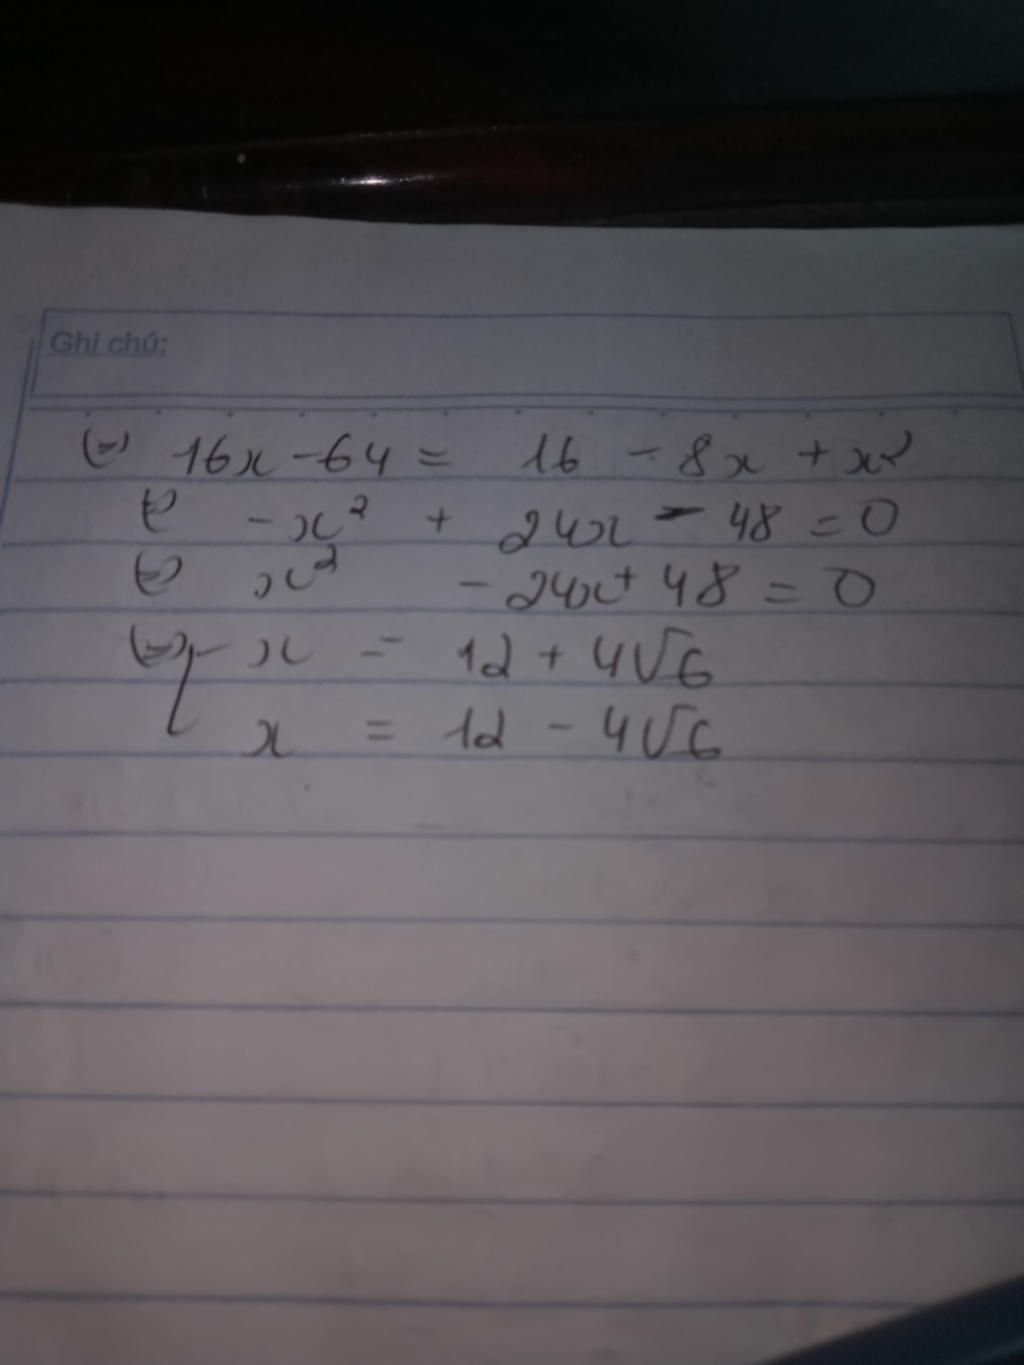 Ghi chú:
(=) 16x - 64 = 16 - 8x + x²
(=) - x² + 24x - 48 = 0
(=) x² - 24x + 48 = 0
(=) [ x = 12 + 4√6
x = 12 - 4√6